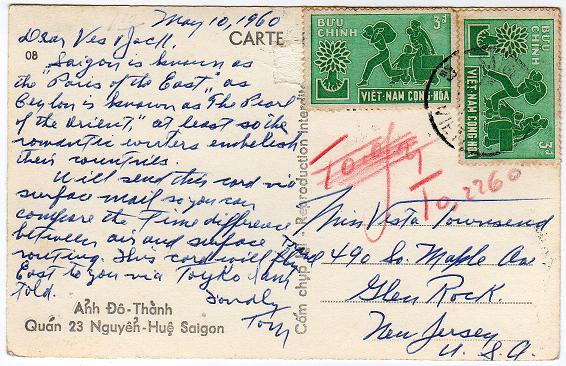 May 10, 1960
Dear Ves & Jack.
Saigon is known as
the "Paris of the East," as
Ceylon is known as The Pearl
of the Orient," at least so the
romantic writers embelesh
their countries.
Will send this card via
surface mail so you can
compare the Time difference
between air and surface
routing. This card will travel
East to you via Toyko I am
Told.
Fondly
Tom
08
Ảnh Đô-Thành
Quán 23 Nguyễn-Huệ Saigon
CARTE
Cấm chụp lại - Reproduction interdite
BƯU CHÍNH
3đ
VIỆT-NAM CỘNG-HÒA
BƯU CHÍNH
3đ
VIỆT-NAM CỘNG-HÒA
To, 2260
Miss Vesta Townsend
490 So. Maple Ave
Glen Rock.
New Jersey
U. S. A.